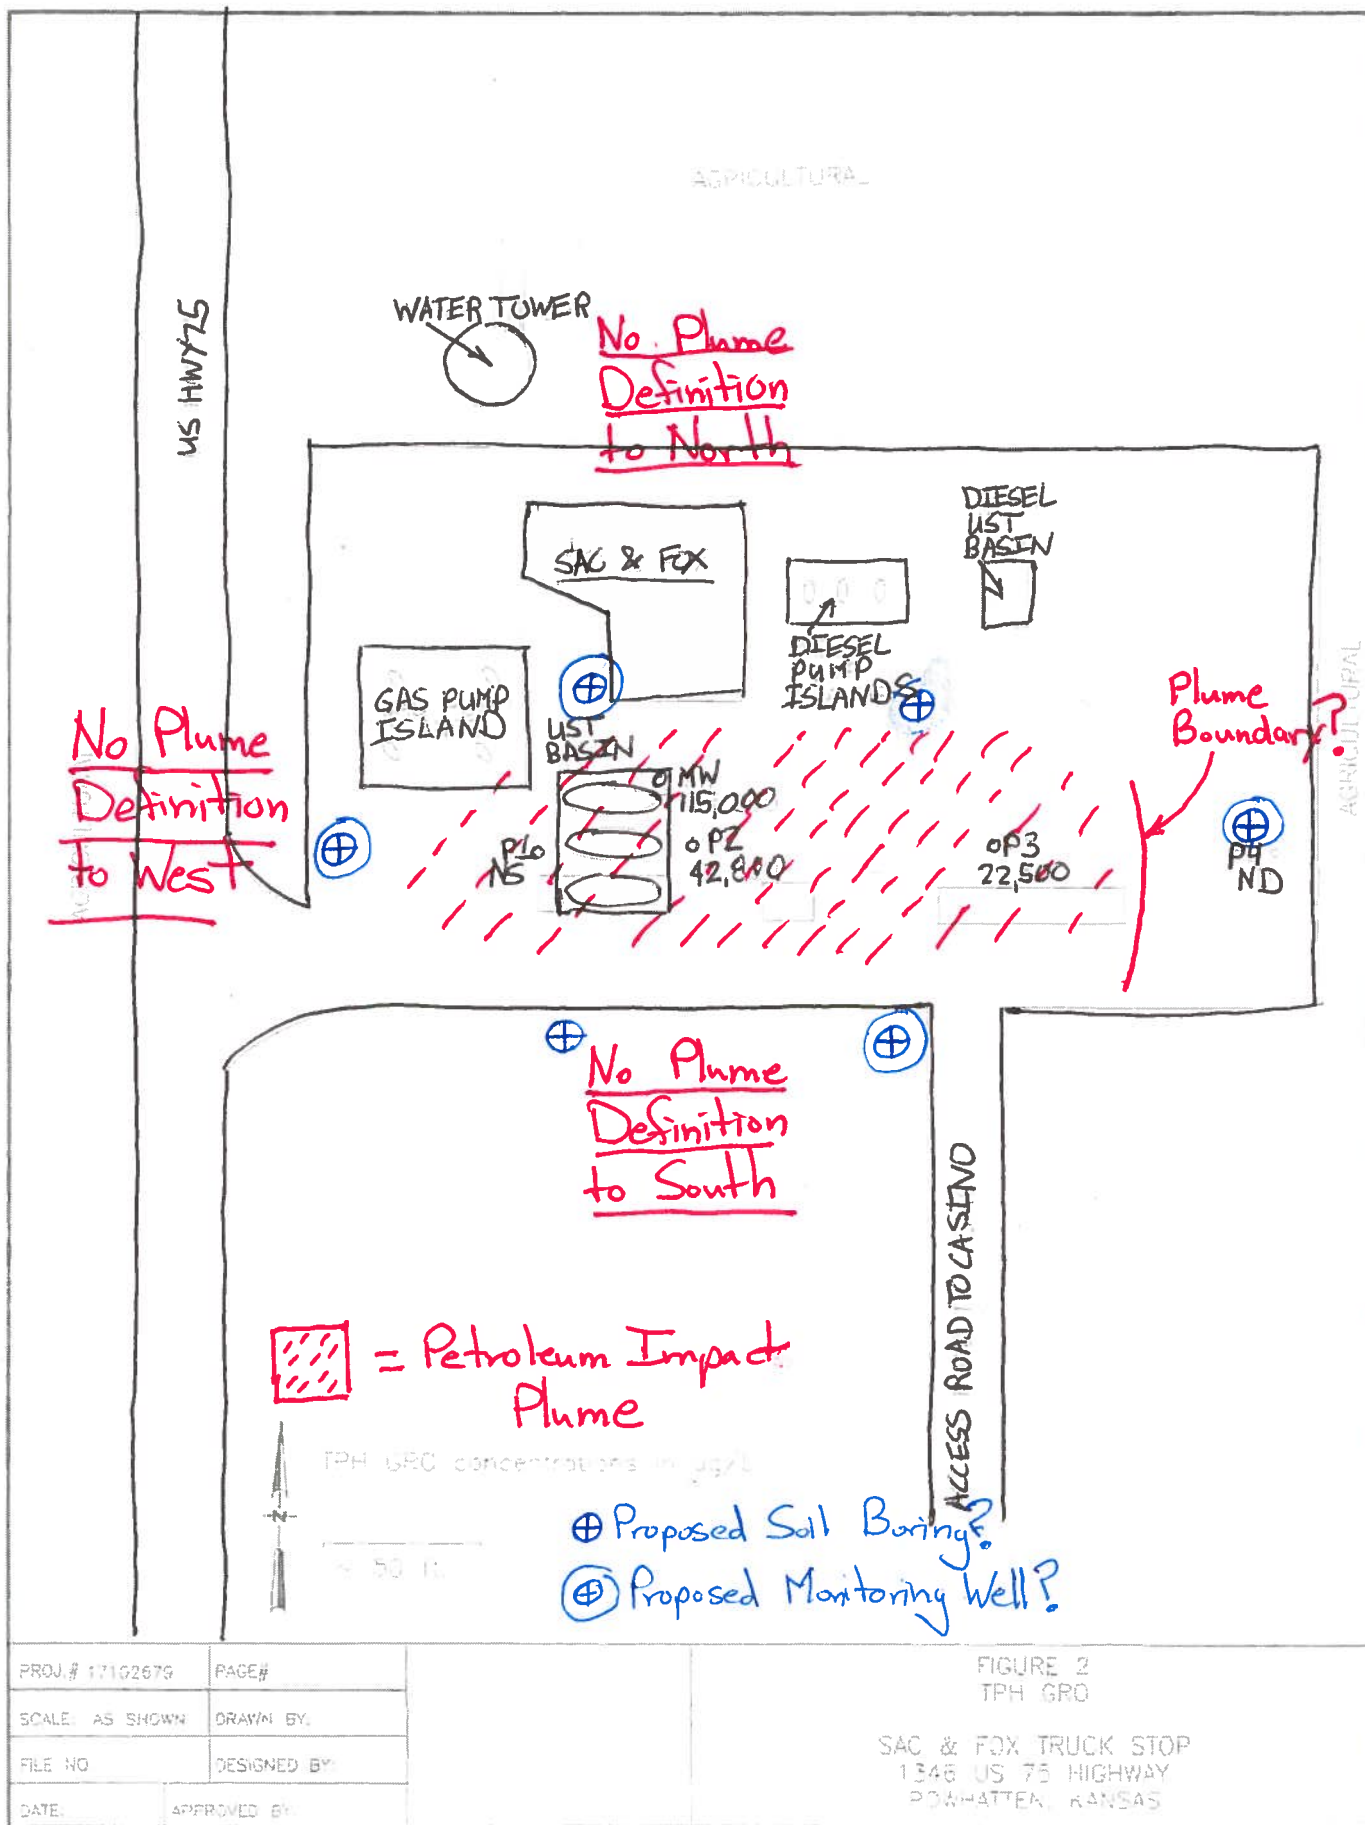 AGRICULTURAL
US HWY 75
WATER TOWER
No Plume
Definition
to North
DIESEL
UST
BASIN
SAC & FOX
DIESEL
PUMP
ISLANDS
GAS PUMP
ISLAND
UST
BASIN
AGRICULTURAL
Plume
Boundary?
No Plume
Definition
to West
MW
115,000
P1
NS
P2
42,800
P3
22,500
P4
ND
No Plume
Definition
to South
ACCESS ROAD TO CASINO
= Petroleum Impact
Plume
TPH GRO concentrations in µg/L
N
50 ft.
Proposed Soil Boring?
Proposed Monitoring Well?
PROJ.# 17102679
PAGE#
SCALE: AS SHOWN
DRAWN BY:
FILE NO
DESIGNED BY:
DATE:
APPROVED BY:
FIGURE 2
TPH GRO
SAC & FOX TRUCK STOP
1346 US 75 HIGHWAY
POWHATTEN, KANSAS